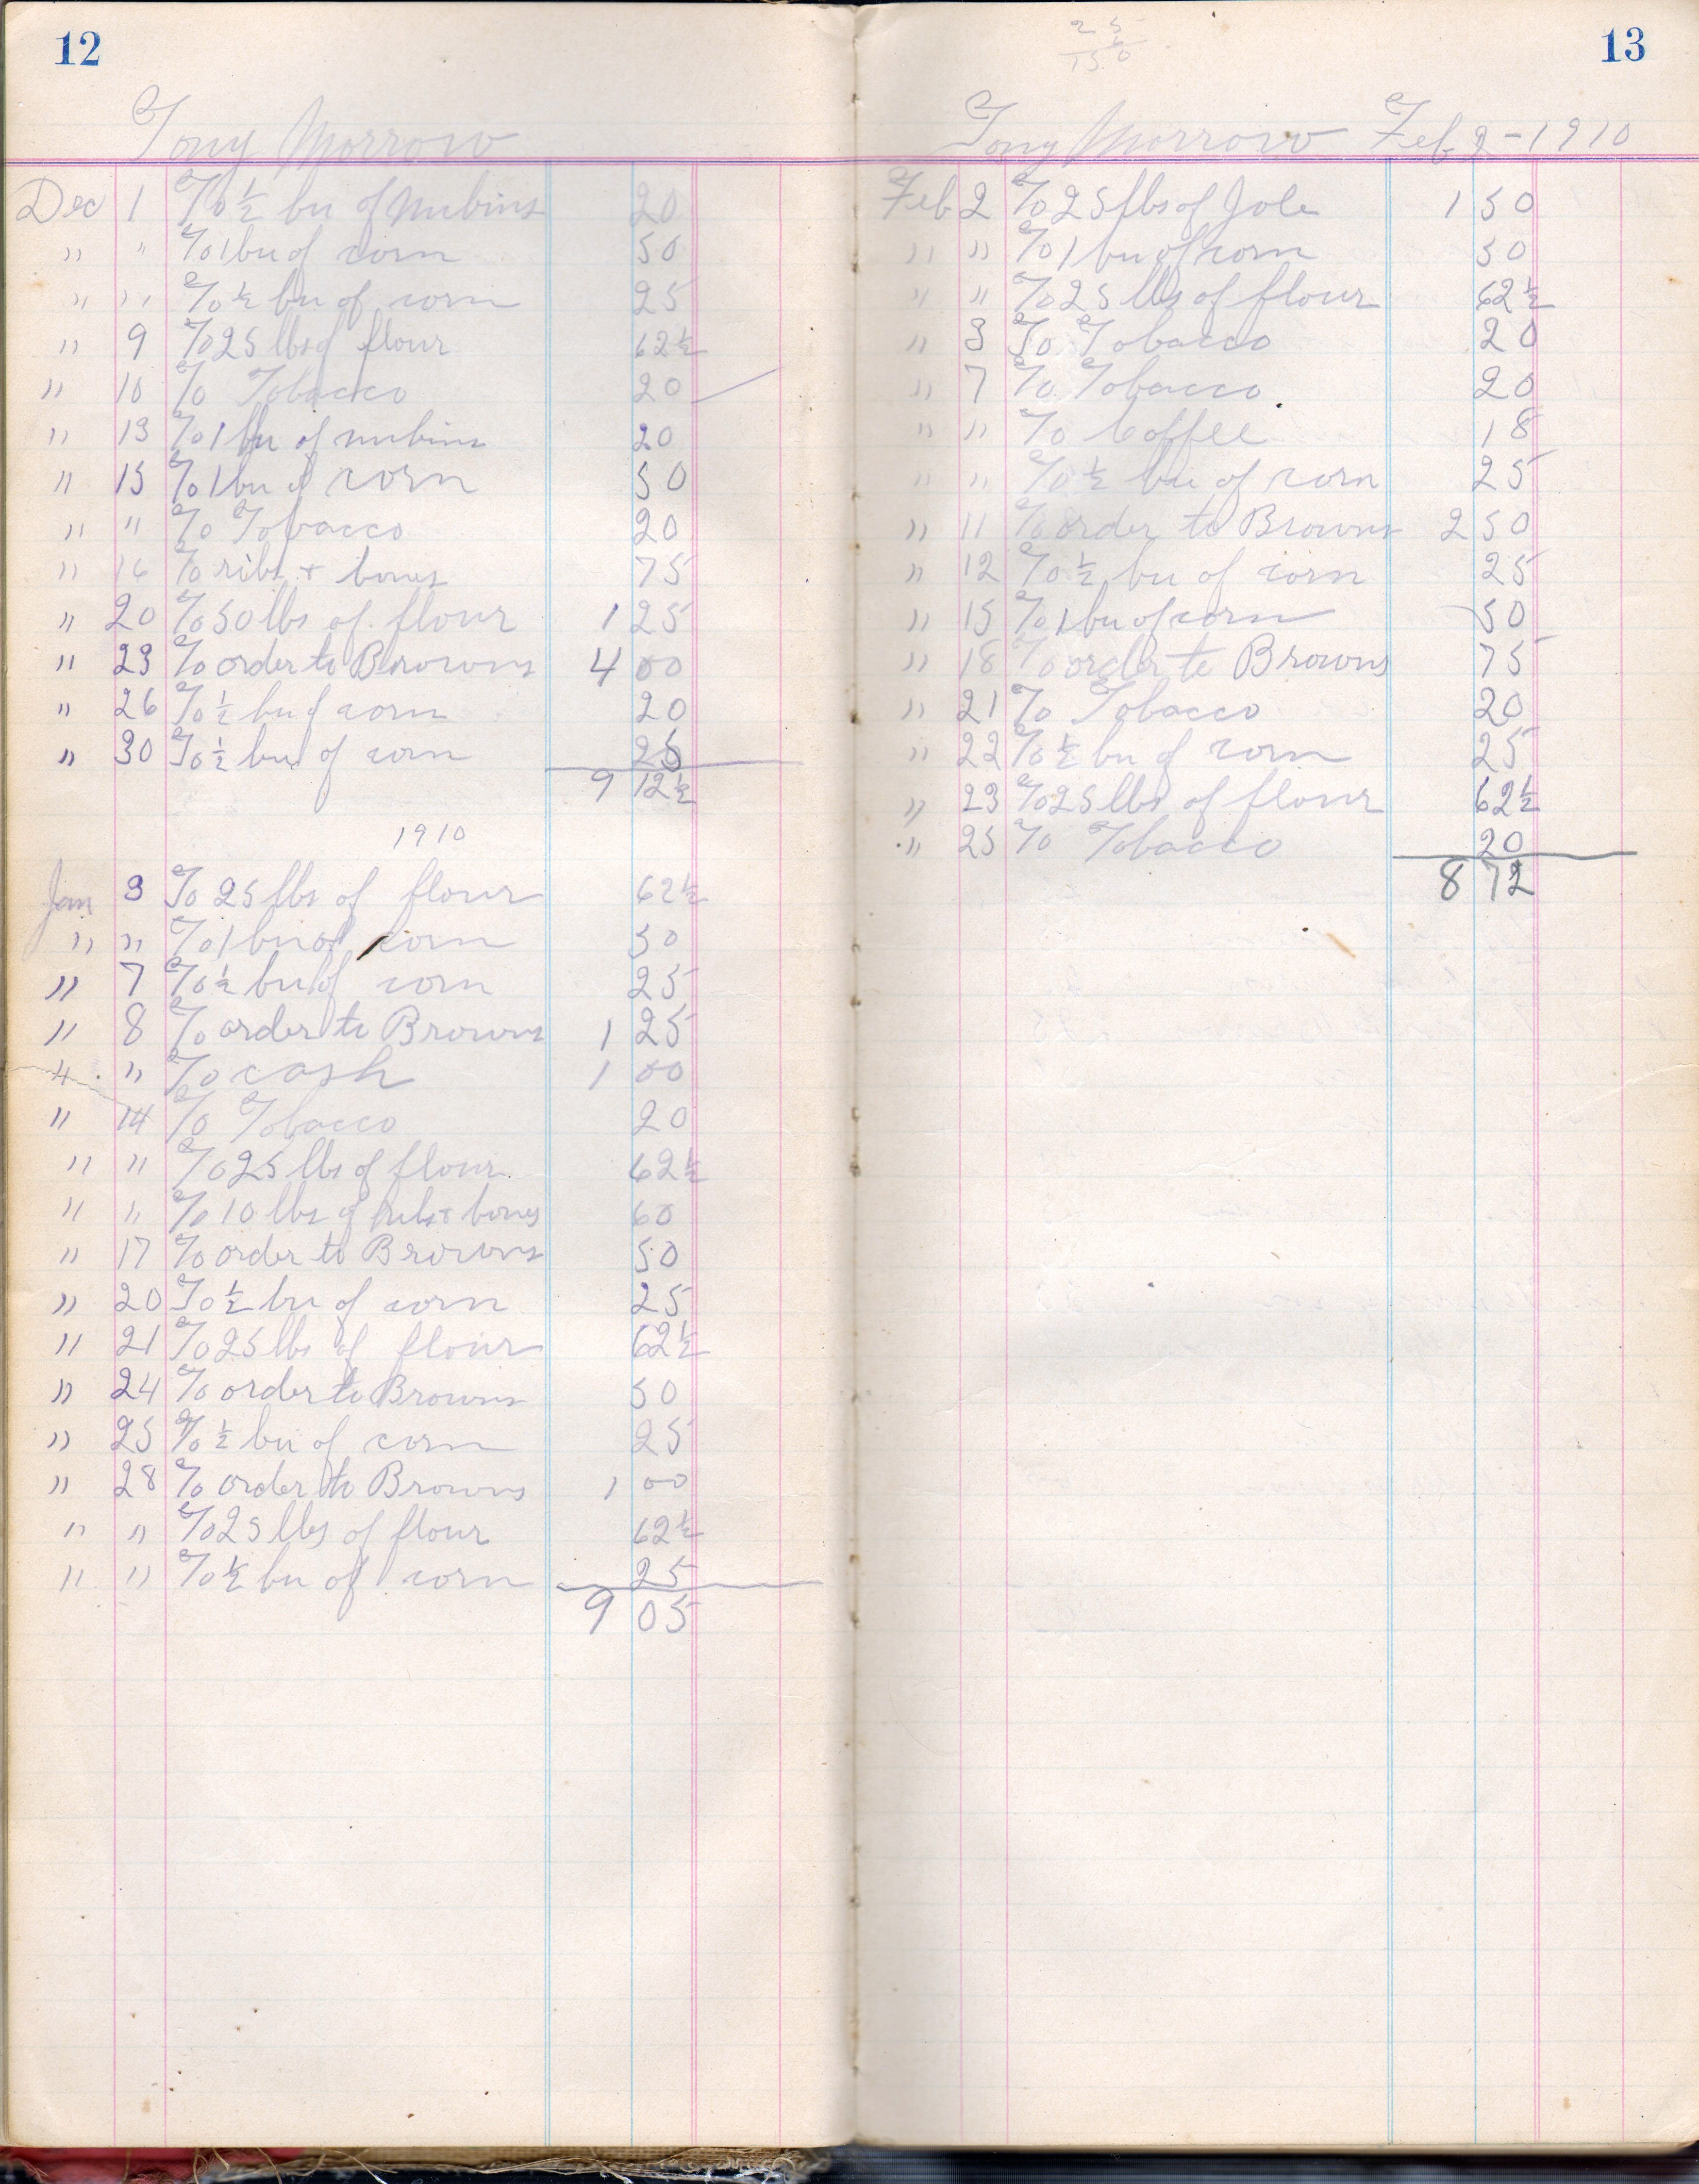 12
Tony Morrow
Dec 1 To ½ bu of Nubins 20
" " To 1 bu of corn 50
" " To ½ bu of corn 25
" 9 To 25 lbs of flour 62½
" 10 To Tobacco 20
" 13 To 1 bu of nubins 20
" 15 To 1 bu of corn 50
" " To Tobacco 20
" 16 To ribs + bones 75
" 20 To 50 lbs of flour 1 25
" 23 To order to Browns 4 00
" 26 To ½ bu of corn 20
" 30 To ½ bu of corn 25
9 12½
1910
Jan 3 To 25 lbs of flour 62½
" " To 1 bu of corn 50
" 7 To ½ bu of corn 25
" 8 To order to Browns 1 25
" " To cash 1 00
" 14 To Tobacco 20
" " To 25 lbs of flour 62½
" " To 10 lbs of ribs + bones 60
" 17 To order to Browns 50
" 20 To ½ bu of corn 25
" 21 To 25 lbs of flour 62½
" 24 To order to Browns 50
" 25 To ½ bu of corn 25
" 28 To order to Browns 1 00
" " To 25 lbs of flour 62½
" " To ½ bu of corn 25
9 05
13
25
6
150
Tony Morrow Feb 2-1910
Feb 2 To 25 lbs of Jole 1 50
" " To 1 bu of corn 50
" " To 25 lbs of flour 62½
" 3 To Tobacco 20
" 7 To Tobacco 20
" " To Coffee 18
" " To ½ bu of corn 25
" 11 To order to Browns 2 50
" 12 To ½ bu of corn 25
" 15 To 1 bu of corn 50
" 18 To order to Browns 75
" 21 To Tobacco 20
" 22 To ½ bu of corn 25
" 23 To 25 lbs of flour 62½
" 25 To Tobacco 20
8 72